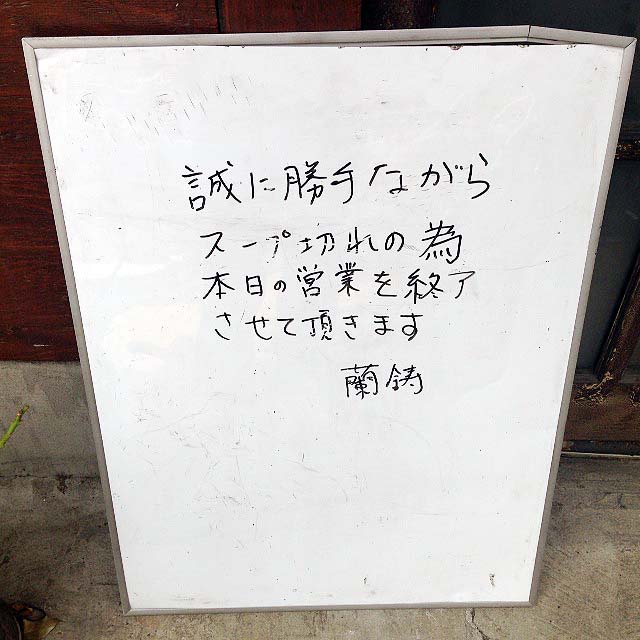 誠に勝手ながら
スープ切れの為
本日の営業を終了
させて頂きます
蘭鋳